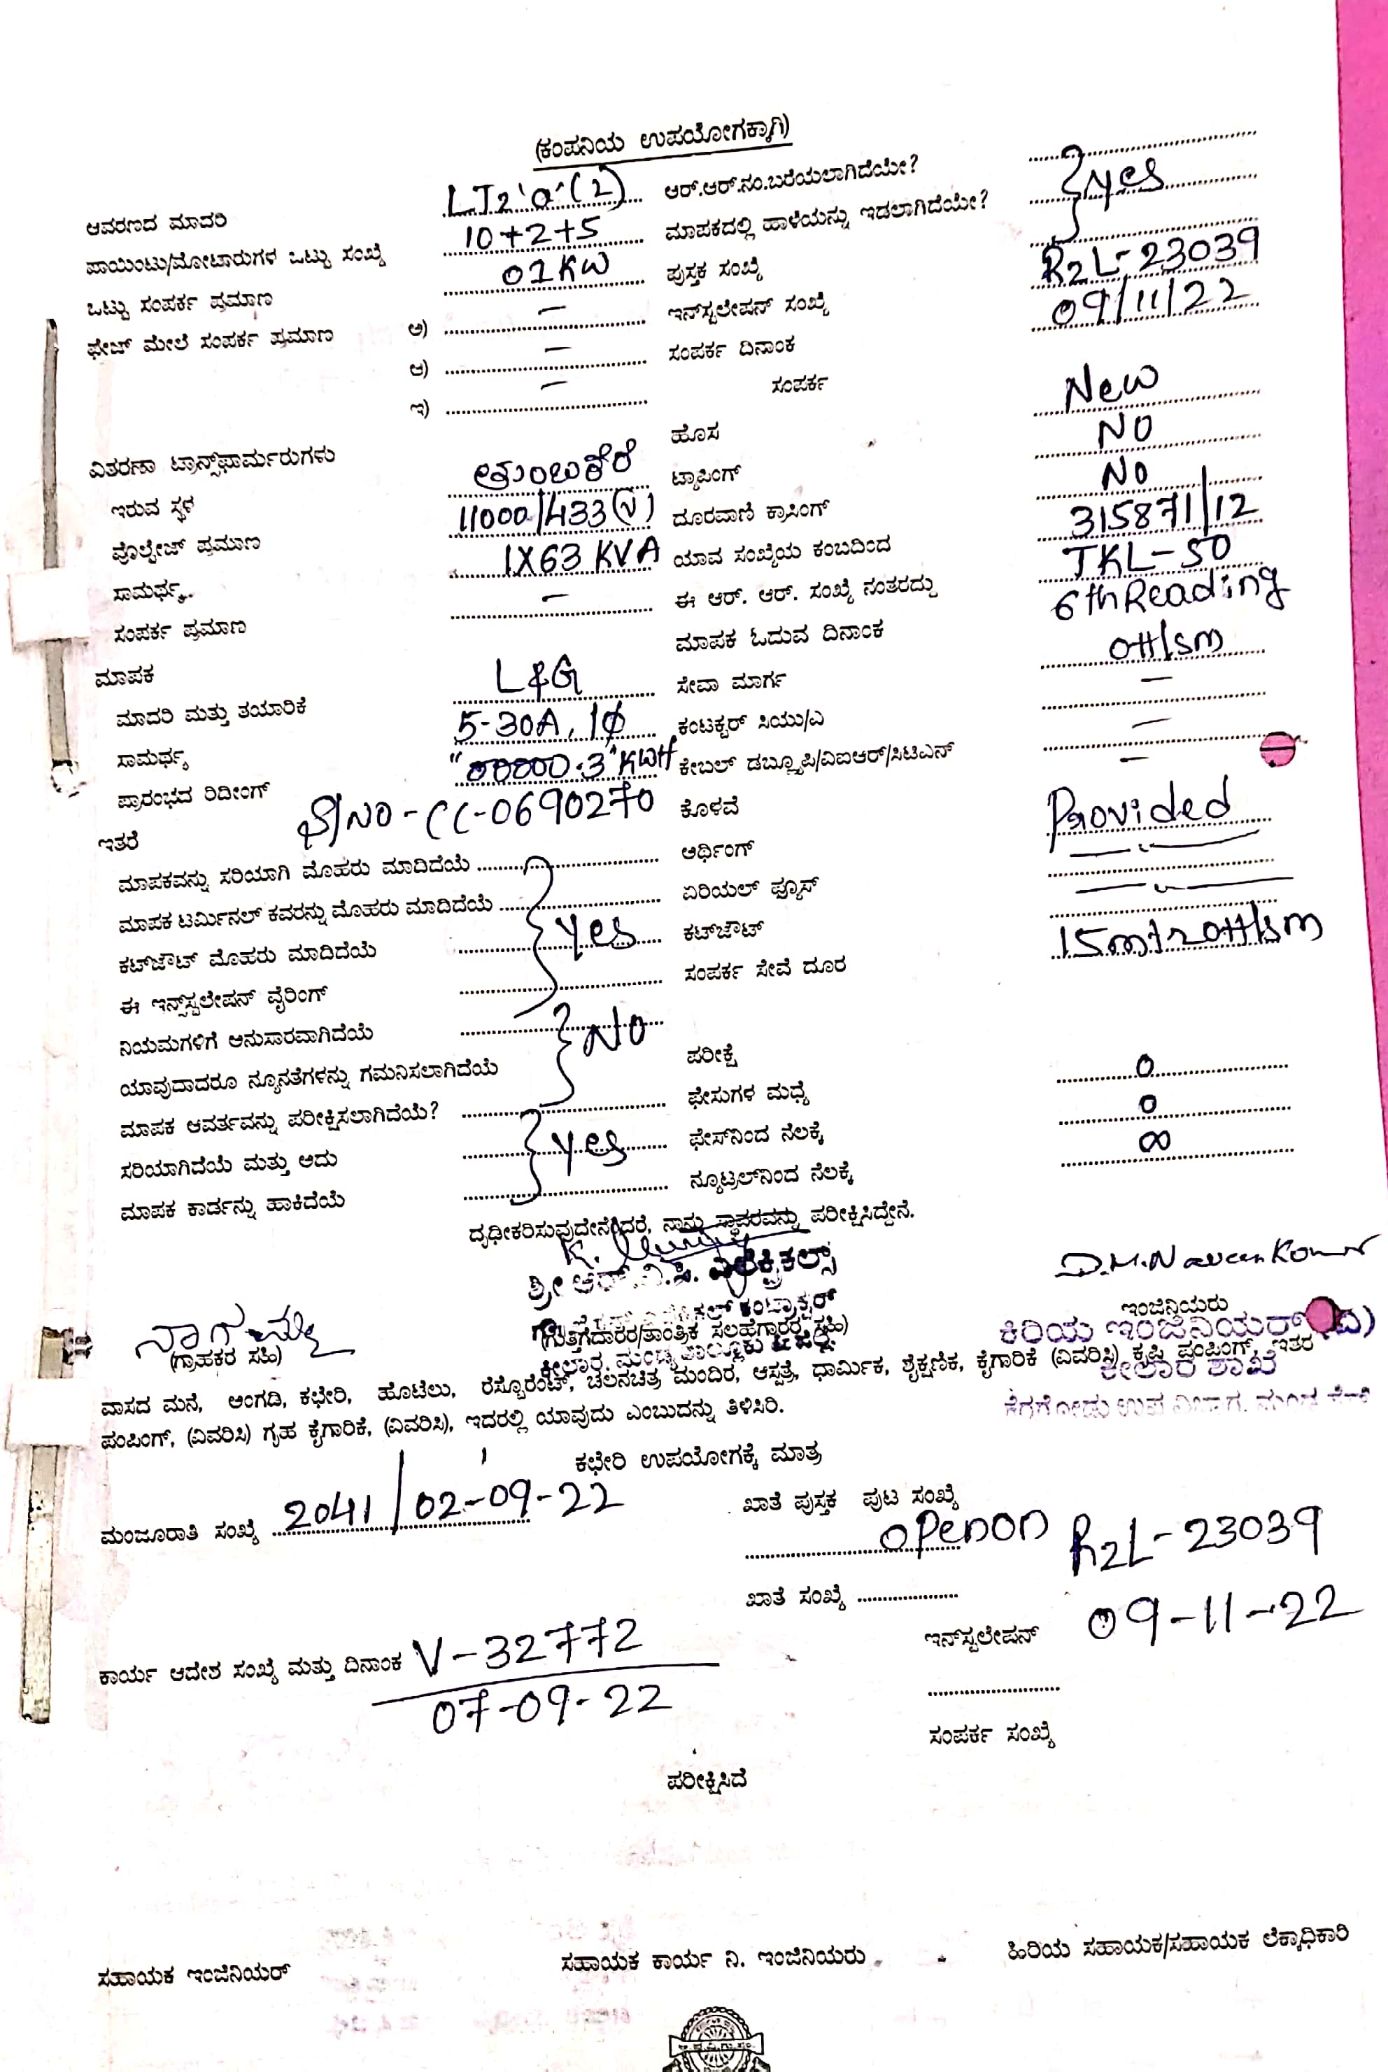 (ಕಂಪನಿಯ ಉಪಯೋಗಕ್ಕಾಗಿ)
ಆವರಣದ ಮಾದರಿ LT2 'a' (2) ಆರ್.ಆರ್.ನಂ.ಬರೆಯಲಾಗಿದೆಯೇ?
ಪಾಯಿಂಟು/ಮೋಟಾರುಗಳ ಒಟ್ಟು ಸಂಖ್ಯೆ 10+2+5 ಮಾಪಕದಲ್ಲಿ ಹಾಳೆಯನ್ನು ಇಡಲಾಗಿದೆಯೇ? } yes
ಒಟ್ಟು ಸಂಪರ್ಕ ಪ್ರಮಾಣ 01KW ಪುಸ್ತಕ ಸಂಖ್ಯೆ
ಫೇಜ್ ಮೇಲೆ ಸಂಪರ್ಕ ಪ್ರಮಾಣ ಅ) — ಇನ್‌ಸ್ಟಲೇಷನ್ ಸಂಖ್ಯೆ R2L-23039
ಆ) — ಸಂಪರ್ಕ ದಿನಾಂಕ 09/11/22
ಇ) — ಸಂಪರ್ಕ
ಹೊಸ New
ವಿತರಣಾ ಟ್ರಾನ್ಸ್‌ಫಾರ್ಮರುಗಳು
ಇರುವ ಸ್ಥಳ ಟ್ಯಾಪಿಂಗ್ NO
ವೊಲ್ಟೇಜ್ ಪ್ರಮಾಣ 11000/433(V) ದೂರವಾಣಿ ಕ್ರಾಸಿಂಗ್ NO
ಸಾಮರ್ಥ್ಯ.. 1X63 KVA ಯಾವ ಸಂಖ್ಯೆಯ ಕಂಬದಿಂದ 315871/12
ಸಂಪರ್ಕ ಪ್ರಮಾಣ — ಈ ಆರ್. ಆರ್. ಸಂಖ್ಯೆ ನಂತರದ್ದು TKL-50
ಮಾಪಕ ಮಾಪಕ ಓದುವ ದಿನಾಂಕ 6th Reading
ಮಾದರಿ ಮತ್ತು ತಯಾರಿಕೆ L&G ಸೇವಾ ಮಾರ್ಗ OH/sm
ಸಾಮರ್ಥ್ಯ 5-30A, 1φ ಕಂಟಕ್ಟರ್ ಸಿಯು/ಎ —
ಪ್ರಾರಂಭದ ರಿಡಿಂಗ್ "00000.3" KWH ಕೇಬಲ್ ಡಬ್ಲ್ಯೂಪಿ/ವಿಐಆರ್/ಸಿಟಿಎನ್ —
ಇತರೆ S/NO-CC-0690270 ಕೊಳವೆ —
ಮಾಪಕವನ್ನು ಸರಿಯಾಗಿ ಮೊಹರು ಮಾಡಿದೆಯೆ ಅರ್ಥಿಂಗ್ Provided
ಮಾಪಕ ಟರ್ಮಿನಲ್ ಕವರನ್ನು ಮೊಹರು ಮಾಡಿದೆಯೆ ಏರಿಯಲ್ ಫ್ಯೂಸ್ — " —
ಕಟ್‌ಔಟ್ ಮೊಹರು ಮಾಡಿದೆಯೆ } yes ಕಟ್‌ಔಟ್ — " —
ಈ ಇನ್‌ಸ್ಟಲೇಷನ್ ವೈರಿಂಗ್ ಸಂಪರ್ಕ ಸೇವೆ ದೂರ
ನಿಯಮಗಳಿಗೆ ಅನುಸಾರವಾಗಿದೆಯೆ
ಯಾವುದಾದರೂ ನ್ಯೂನತೆಗಳನ್ನು ಗಮನಿಸಲಾಗಿದೆಯೆ } NO ಪರೀಕ್ಷೆ
ಮಾಪಕ ಆವರ್ತವನ್ನು ಪರೀಕ್ಷಿಸಲಾಗಿದೆಯೆ? ಫೇಸುಗಳ ಮಧ್ಯೆ 0
ಸರಿಯಾಗಿದೆಯೆ ಮತ್ತು ಅದು } yes ಫೇಸ್‌ನಿಂದ ನೆಲಕ್ಕೆ 0
ಮಾಪಕ ಕಾರ್ಡನ್ನು ಹಾಕಿದೆಯೆ ನ್ಯೂಟ್ರಲ್‌ನಿಂದ ನೆಲಕ್ಕೆ ∞
ದೃಢೀಕರಿಸುವುದೇನೆಂದರೆ, ನಾನು ಸ್ಥಾವರವನ್ನು ಪರೀಕ್ಷಿಸಿದ್ದೇನೆ.
ಶ್ರೀ ಆರ್.ವಿ.ಸಿ. ಎಲೆಕ್ಟ್ರಿಕಲ್ಸ್ D.M.Naveen Kumar
ನಾಗಮ್ಮ ಇಂಜಿನಿಯರು
(ಗ್ರಾಹಕರ ಸಹಿ) (ಗುತ್ತಿಗೆದಾರರ/ತಾಂತ್ರಿಕ ಸಲಹೆಗಾರರ ಸಹಿ) ಕಿರಿಯ ಇಂಜಿನಿಯರ್ (ವಿ)
ಕೀಲಾರ ಶಾಖೆ
ವಾಸದ ಮನೆ, ಅಂಗಡಿ, ಕಛೇರಿ, ಹೊಟೆಲು, ರೆಸ್ಟೊರೆಂಟ್, ಚಲನಚಿತ್ರ ಮಂದಿರ, ಆಸ್ಪತ್ರೆ, ಧಾರ್ಮಿಕ, ಶೈಕ್ಷಣಿಕ, ಕೈಗಾರಿಕೆ (ವಿವರಿಸಿ) ಕೃಷಿ ಪಂಪಿಂಗ್, ಇತರ
ಪಂಪಿಂಗ್, (ವಿವರಿಸಿ) ಗೃಹ ಕೈಗಾರಿಕೆ, (ವಿವರಿಸಿ), ಇದರಲ್ಲಿ ಯಾವುದು ಎಂಬುದನ್ನು ತಿಳಿಸಿರಿ.
ಕಛೇರಿ ಉಪಯೋಗಕ್ಕೆ ಮಾತ್ರ
ಮಂಜೂರಾತಿ ಸಂಖ್ಯೆ 2041/02-09-22 ಖಾತೆ ಪುಸ್ತಕ ಪುಟ ಸಂಖ್ಯೆ
openon R2L-23039
ಖಾತೆ ಸಂಖ್ಯೆ
ಕಾರ್ಯ ಆದೇಶ ಸಂಖ್ಯೆ ಮತ್ತು ದಿನಾಂಕ V-32772 ಇನ್‌ಸ್ಟಲೇಷನ್ 09-11-22
07-09-22
ಸಂಪರ್ಕ ಸಂಖ್ಯೆ
ಪರೀಕ್ಷಿಸಿದೆ
ಸಹಾಯಕ ಇಂಜಿನಿಯರ್ ಸಹಾಯಕ ಕಾರ್ಯ ನಿ. ಇಂಜಿನಿಯರು ಹಿರಿಯ ಸಹಾಯಕ/ಸಹಾಯಕ ಲೆಕ್ಕಾಧಿಕಾರಿ